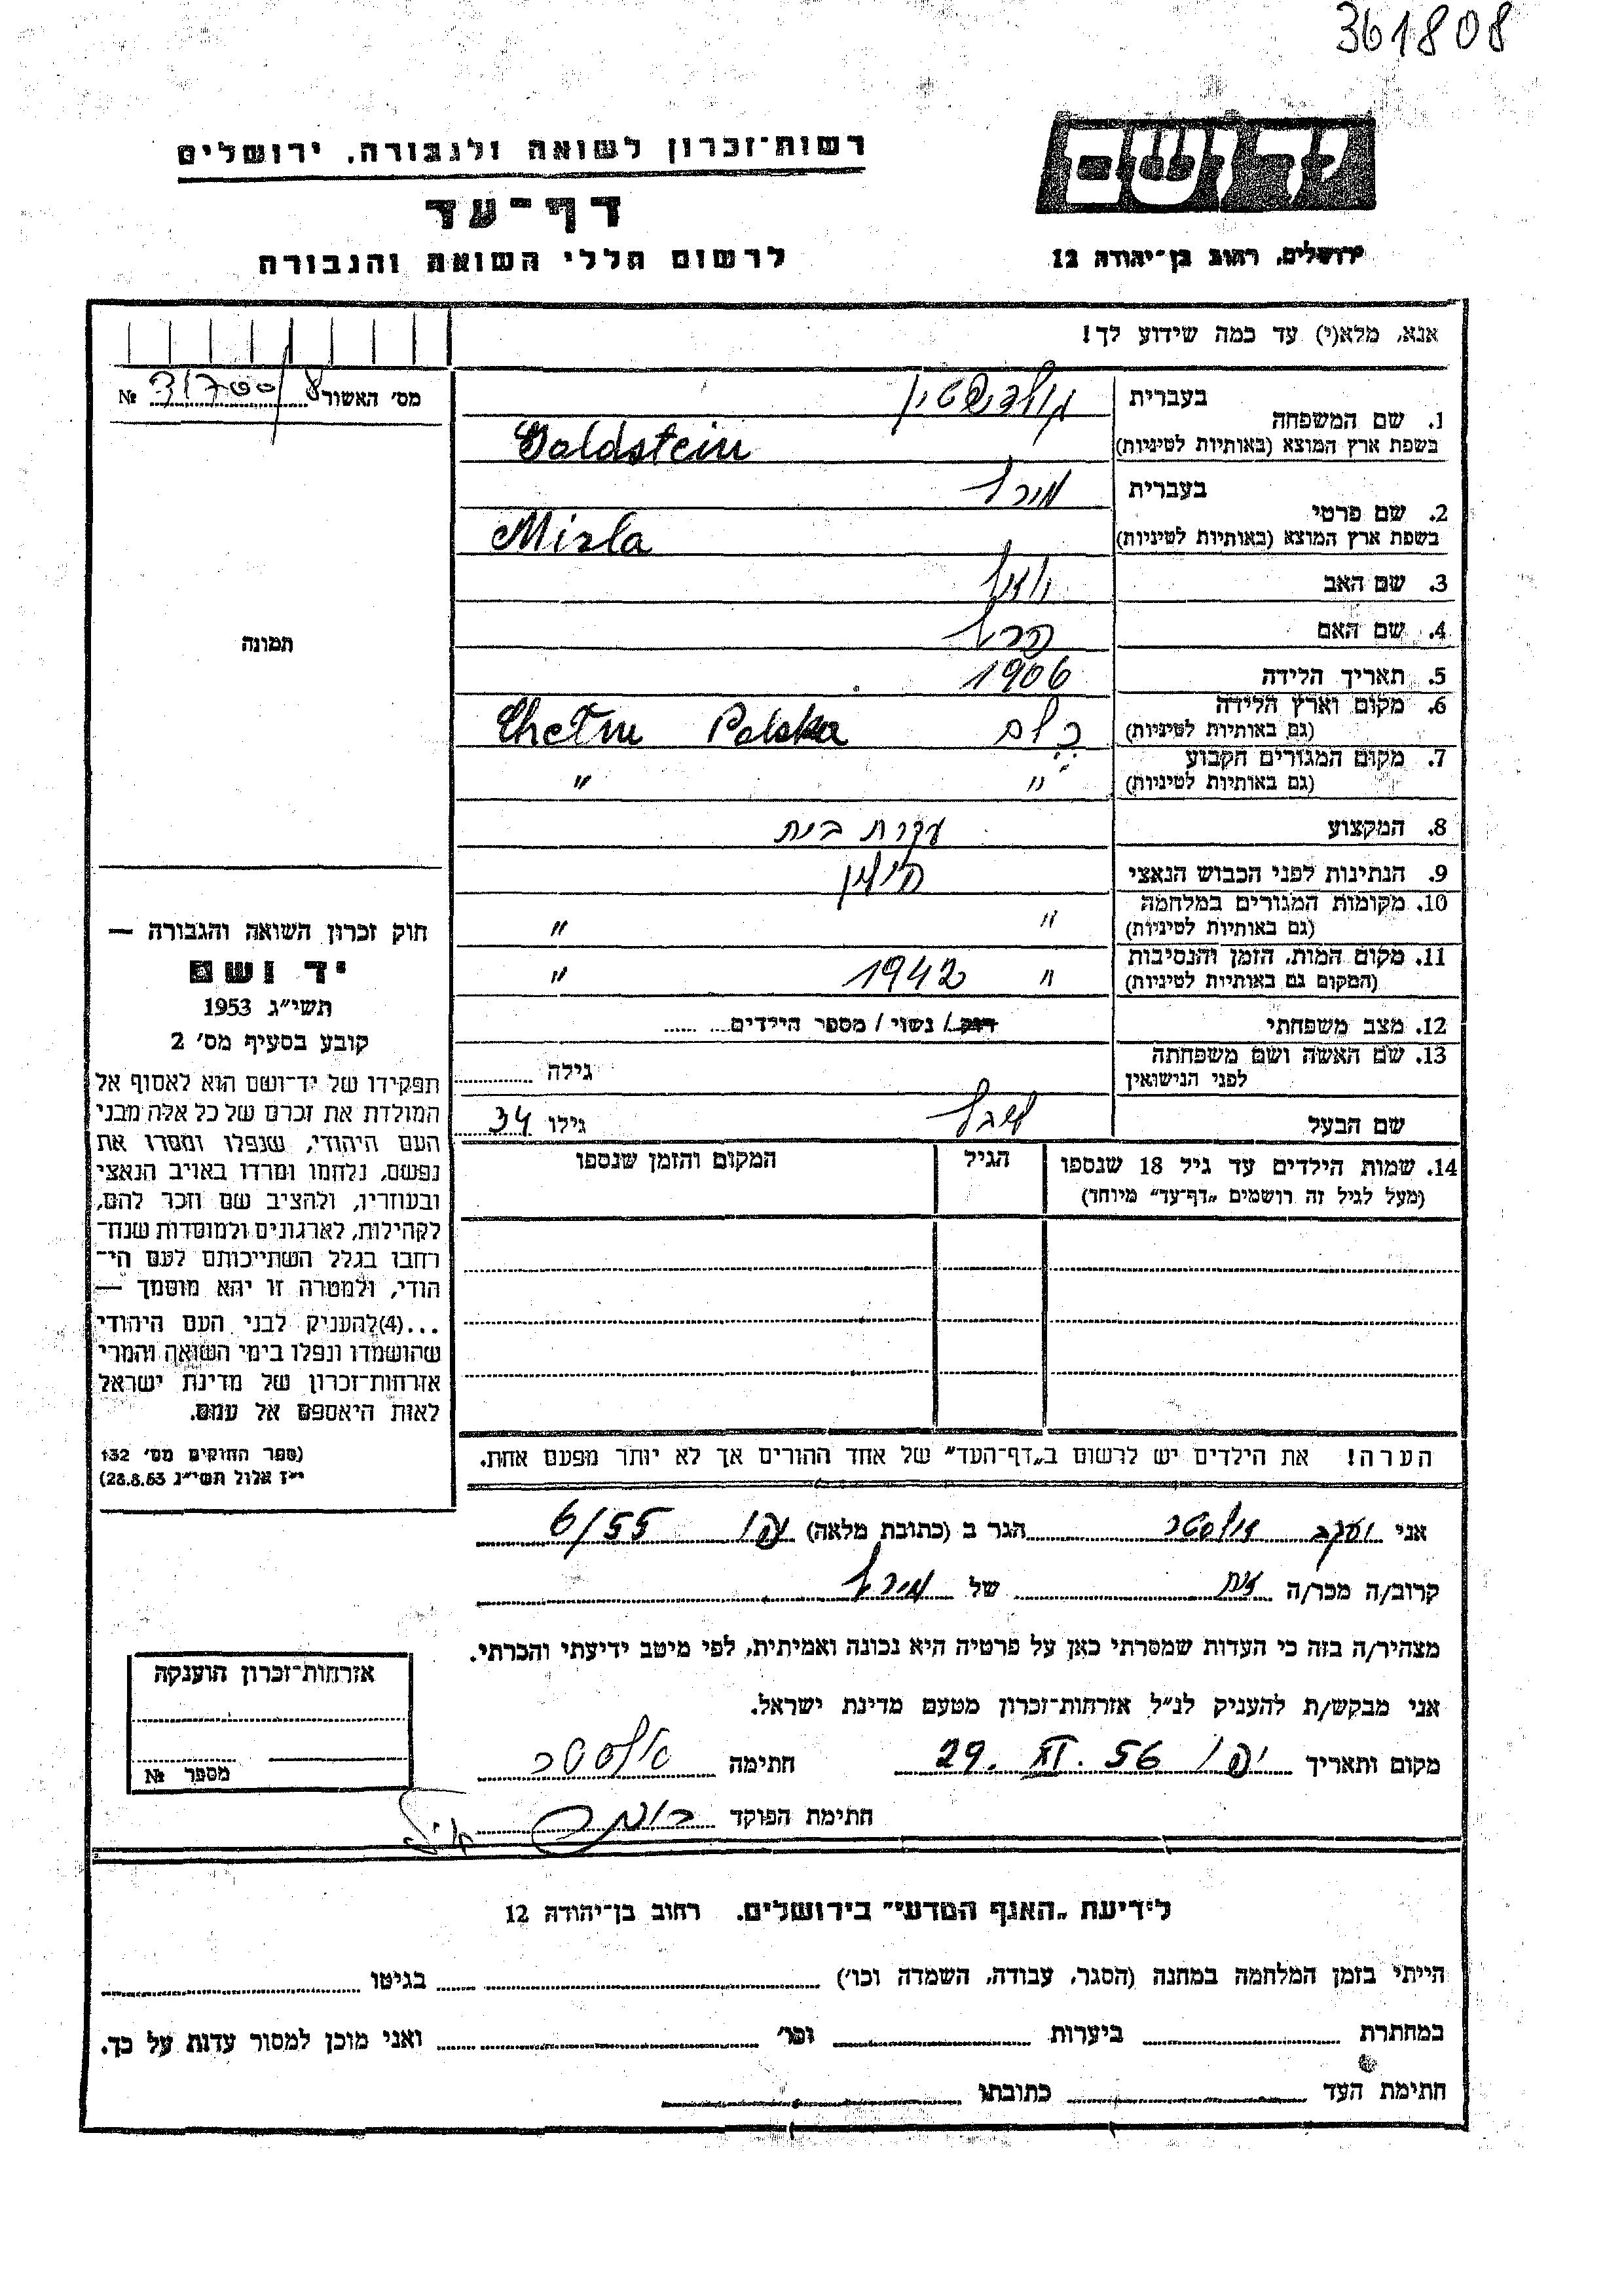 361808
יד ושם
רשות־זכרון לשואה ולגבורה, ירושלים
דף־עד
ירושלים, רחוב בן־יהודה 12
לרשום חללי השואה והגבורה
אנא, מלא(י) עד כמה שידוע לך!
מס' האשור № 31700/8
1. שם המשפחה בעברית גולדשטיין
בשפת ארץ המוצא (באותיות לטיניות) Goldstein
2. שם פרטי בעברית
בשפת ארץ המוצא (באותיות לטיניות) Mirla
3. שם האב
4. שם האם
תמונה
5. תאריך הלידה 1906
6. מקום וארץ הלידה (גם באותיות לטיניות) כלם Chełm Polska
7. מקום המגורים הקבוע (גם באותיות לטיניות) " "
8. המקצוע עקרת בית
9. הנתינות לפני הכבוש הנאצי פולין
10. מקומות המגורים במלחמה (גם באותיות לטיניות) " "
11. מקום המות, הזמן והנסיבות (המקום גם באותיות לטיניות) " 1942 "
12. מצב משפחתי רוק / נשוי / מספר הילדים
13. שם האשה ושם משפחתה לפני הנישואין גילה
שם הבעל גילו 34
14. שמות הילדים עד גיל 18 שנספו הגיל המקום והזמן שנספו
(מעל לגיל זה רושמים „דף־עד” מיוחד)
חוק זכרון השואה והגבורה —
יד ושם
תשי"ג 1953
קובע בסעיף מס' 2
תפקידו של יד־ושם הוא לאסוף אל
המולדת את זכרם של כל אלה מבני
העם היהודי, שנפלו ומסרו את
נפשם, נלחמו ומרדו באויב הנאצי
ובעוזריו, ולהציב שם וזכר להם,
לקהילות, לארגונים ולמוסדות שנח־
רבו בגלל השתייכותם לעם הי־
הודי, ולמטרה זו יהא מוסמך —
...(4) להעניק לבני העם היהודי
שהושמדו ונפלו בימי השואה והמרי
אזרחות־זכרון של מדינת ישראל
לאות היאספם אל עמם.
(ספר החוקים מס' 132
י"ז אלול תשי"ג 28.8.53)
הערה! את הילדים יש לרשום ב„דף־העד” של אחד ההורים אך לא יותר מפעם אחת.
אני יעקב הגר ב (כתובת מלאה) יפו 6/55
קרוב/ה מכר/ה של
מצהיר/ה בזה כי העדות שמסרתי כאן על פרטיה היא נכונה ואמיתית, לפי מיטב ידיעתי והכרתי.
אני מבקש/ת להעניק לנ"ל אזרחות־זכרון מטעם מדינת ישראל.
מקום ותאריך יפו 29. XI. 56 חתימה
חתימת הפוקד
אזרחות־זכרון הוענקה
מספר №
לידיעת „האגף המדעי” בירושלים. רחוב בן־יהודה 12
הייתי בזמן המלחמה במחנה (הסגר, עבודה, השמדה וכו') בגיטו
במחתרת ביערות וכו' ואני מוכן למסור עדות על כך.
חתימת העד כתובתו